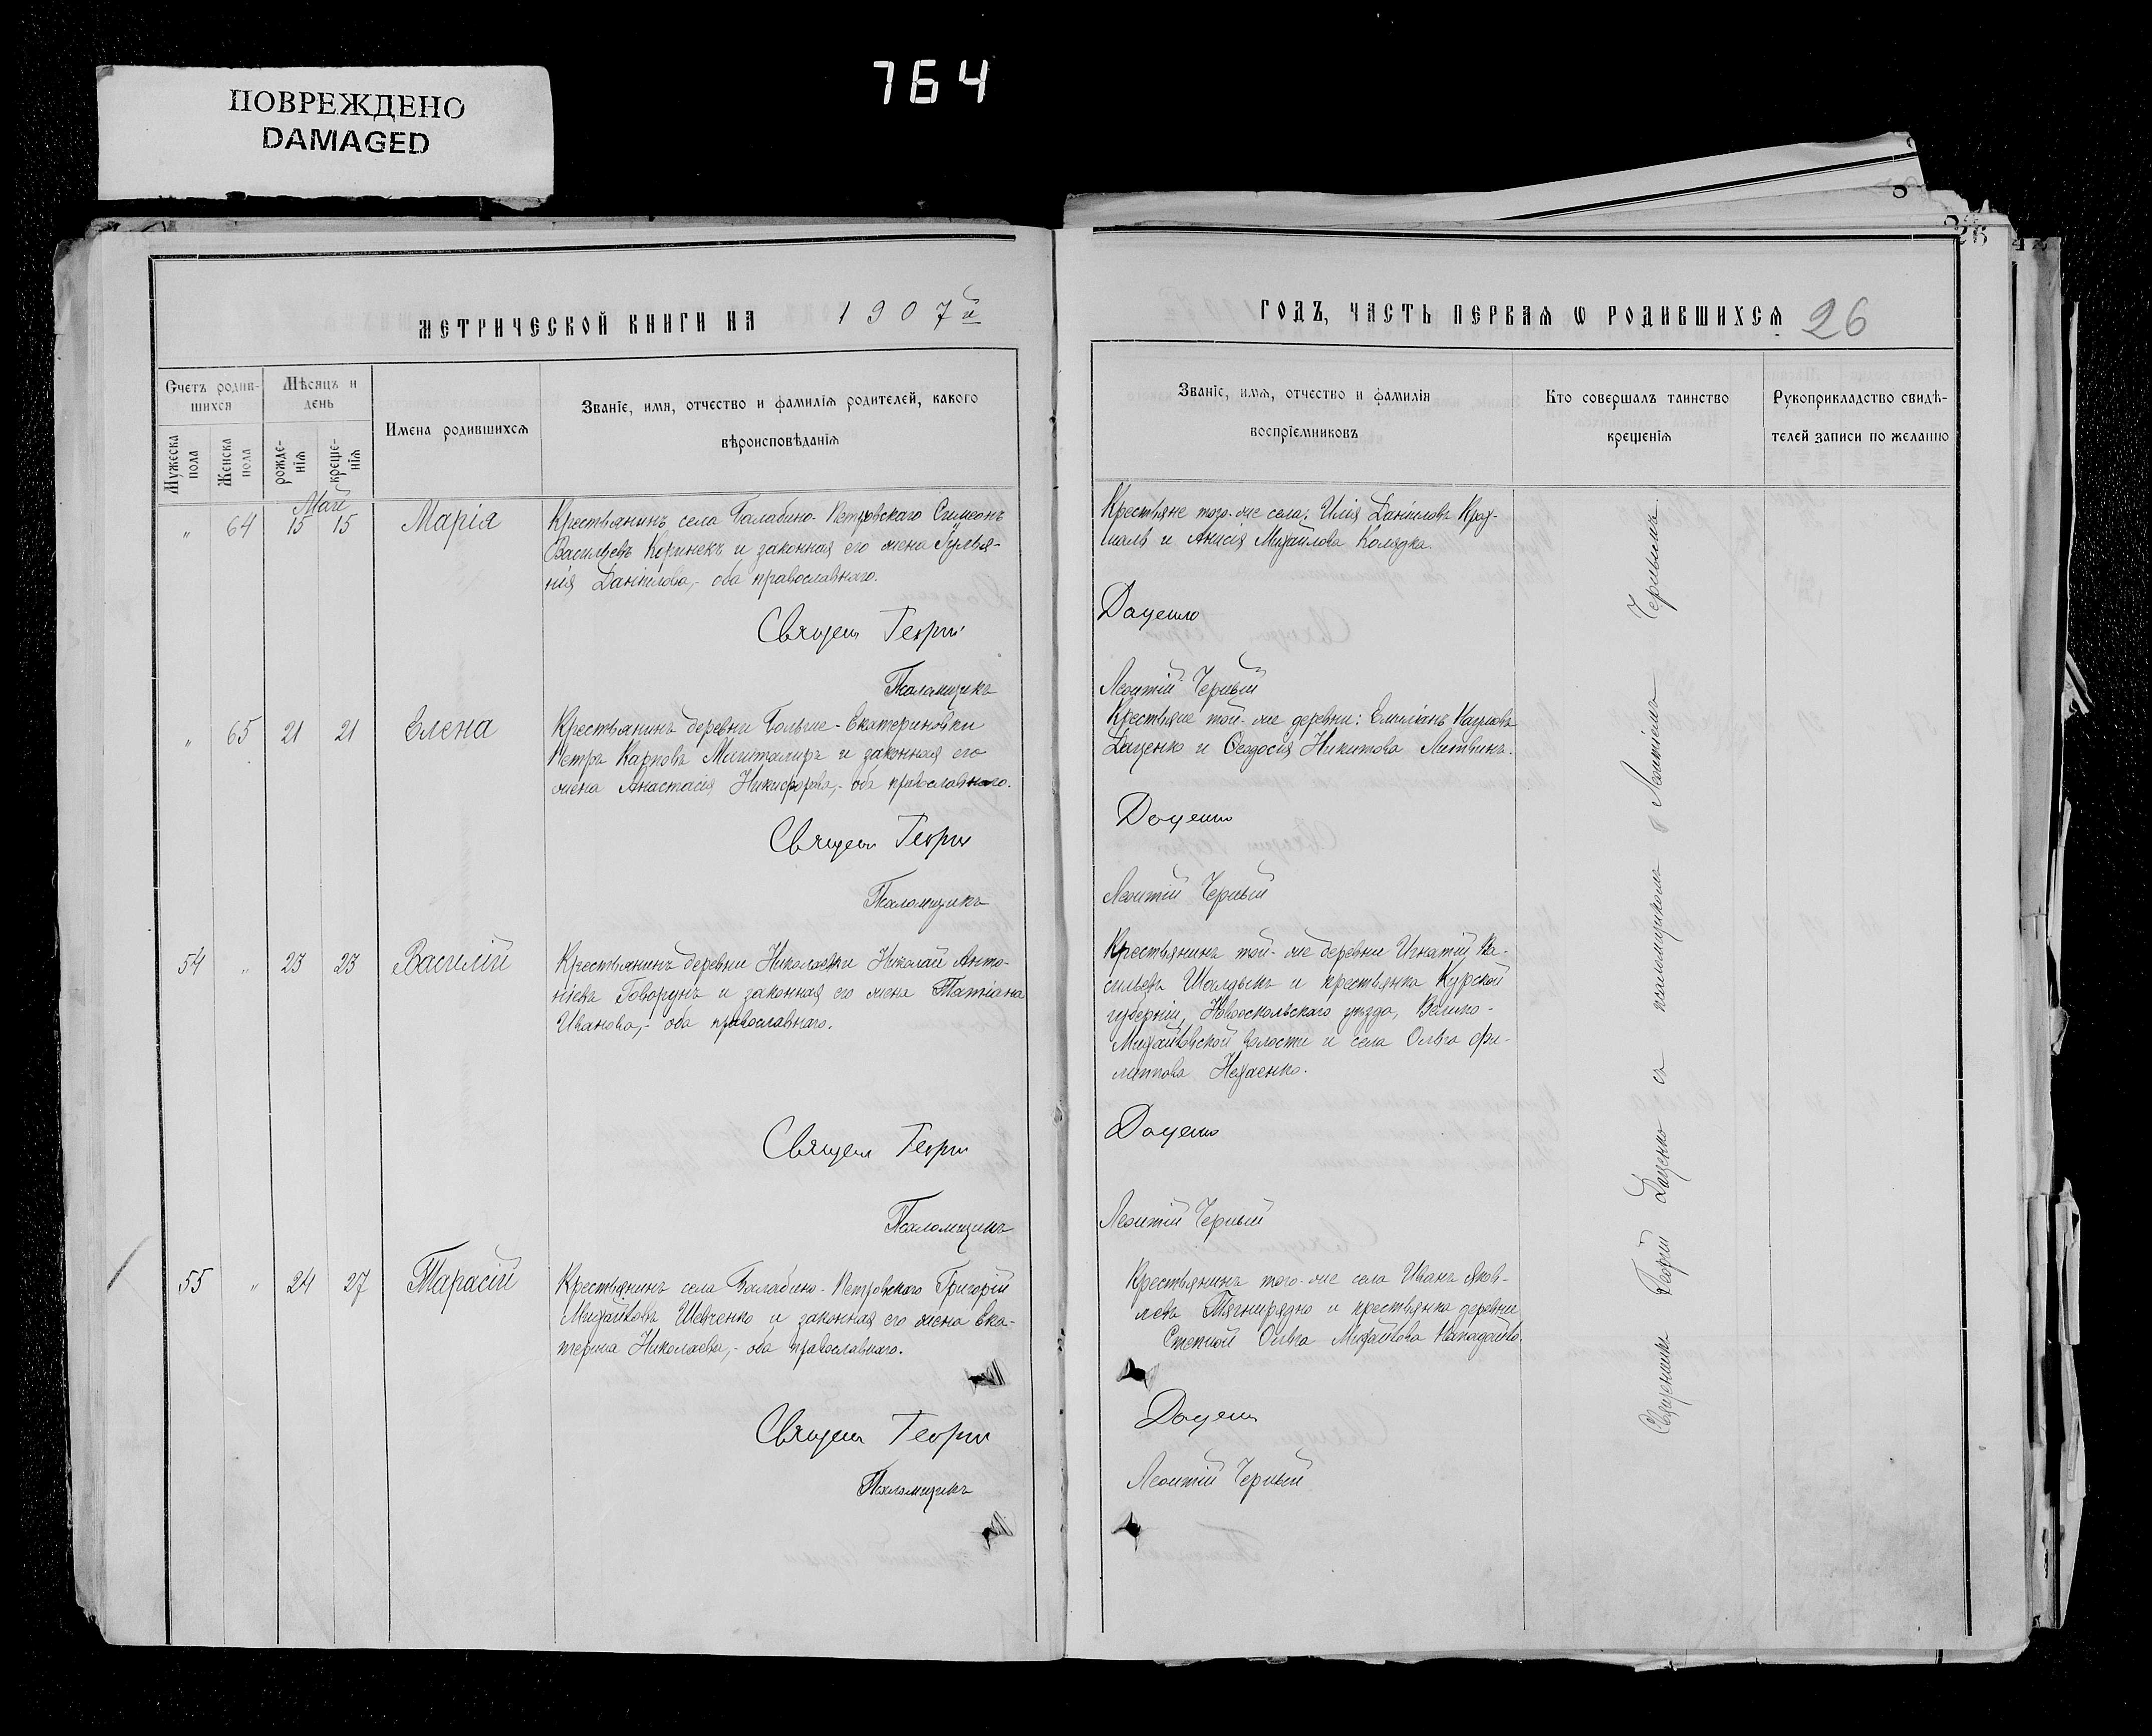 764
ПОВРЕЖДЕНО
DAMAGED
МЕТРИЧЕСКОЙ КНИГИ НА 1907й
Счетъ родив-
шихся
Мѣсяцъ и
день
Мужеска
пола
Женска
пола
рожде-
нія
креще-
нія
Имена родившихся
Званіе, имя, отчество и фамилія родителей, какого
вѣроисповѣданія
Май
" 64 15 15 Марія
Крестьянинъ села Балабино-Петровскаго Симеонъ
Васильевъ и законная его жена
Даніилова,- оба православнаго.
Священ Георгій
Псаломщикъ
" 65 21 21 Елена
Крестьянинъ деревни Больше-Екатериновки
Петръ Карповъ и законная его
жена Анастасія Никифорова,- оба православнаго.
Священ Георгій
Псаломщикъ
54 " 23 23 Василій
Крестьянинъ деревни Николаевки Николай Анто-
ніевъ Говорунъ и законная его жена Татіана
Иванова,- оба православнаго.
Священ Георгій
Псаломщикъ
55 " 24 27 Тарасій
Крестьянинъ села Балабино-Петровскаго Григорій
Михайловъ Шевченко и законная его жена Ека-
терина Николаева,- оба православнаго.
Священ Георгій
Псаломщикъ
26
ГОДЪ, ЧАСТЬ ПЕРВАЯ Ѡ РОДИВШИХСЯ 26
Званіе, имя, отчество и фамилія
воспріемниковъ
Кто совершалъ таинство
крещенія
Рукоприкладство свидѣ-
телей записи по желанію
Крестьяне того-же села: Илія Даніиловъ
и Анисія Михайлова Колядка.
Даценко
Леонтій Черный
Крестьяне той-же деревни: Емиліанъ Карповъ
Даценко и Ѳеодосія Никитова Литвинъ.
Даценко
Леонтій Черный
Крестьянинъ той-же деревни Игнатій Ва-
сильевъ Шалдыкъ и крестьянка Курской
губерніи, Новооскольскаго уѣзда, Велико-
Михайловской волости и села Ольга Фи-
липпова
Даценко
Леонтій Черный
Крестьянинъ того-же села Иванъ Яков-
левъ Тягнирядно и крестьянка деревни
Степной Ольга Михайлова
Даценко
Леонтій Черный
Священникъ Георгій Даценко съ псаломщикомъ Леонтіемъ Чернымъ